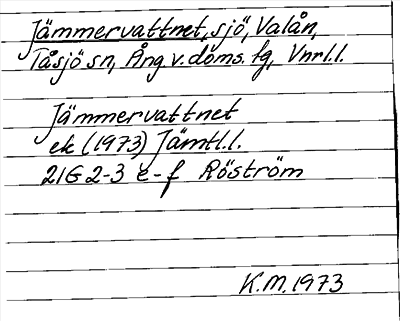 Jämmervattnet, sjö, Valån,
Tåsjö sn, Ång v. doms. fg, Vnrl.l.
Jämmervattnet
ek (1973) Jämtl.l.
21G 2-3 e-f Röström
K.M. 1973